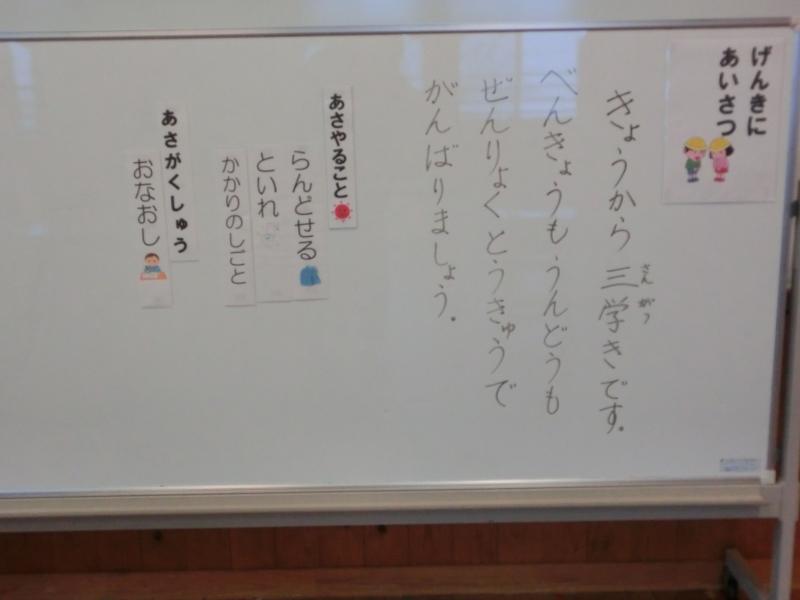 げんきに
あいさつ
きょうから三学きです。
さんがっ
べんきょうもうんどうも
ぜんりょくとうきゅうで
がんばりましょう。
あさやること
らんどせる
といれ
かかりのしごと
あさがくしゅう
おなおし